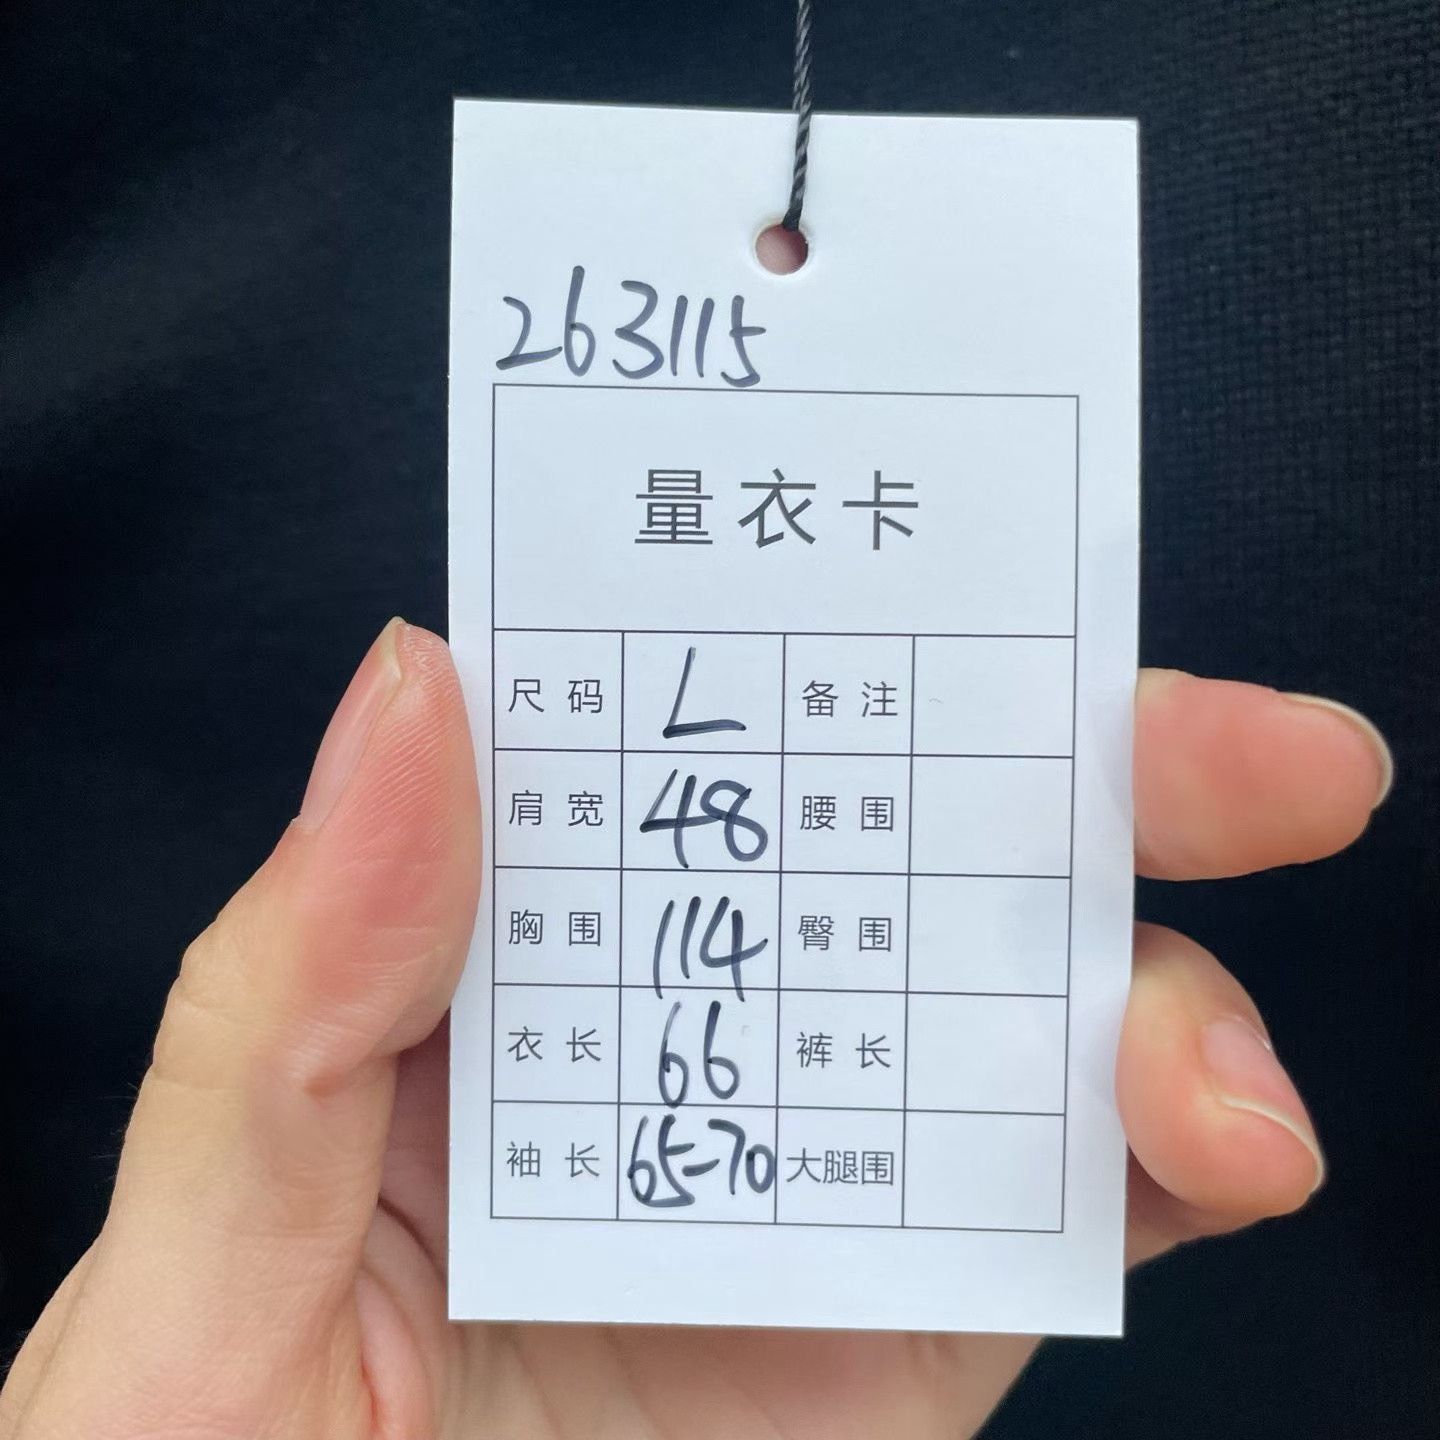 263115
量衣卡
尺码 L 备注
肩宽 48 腰围
胸围 114 臀围
衣长 66 裤长
袖长 65-70 大腿围